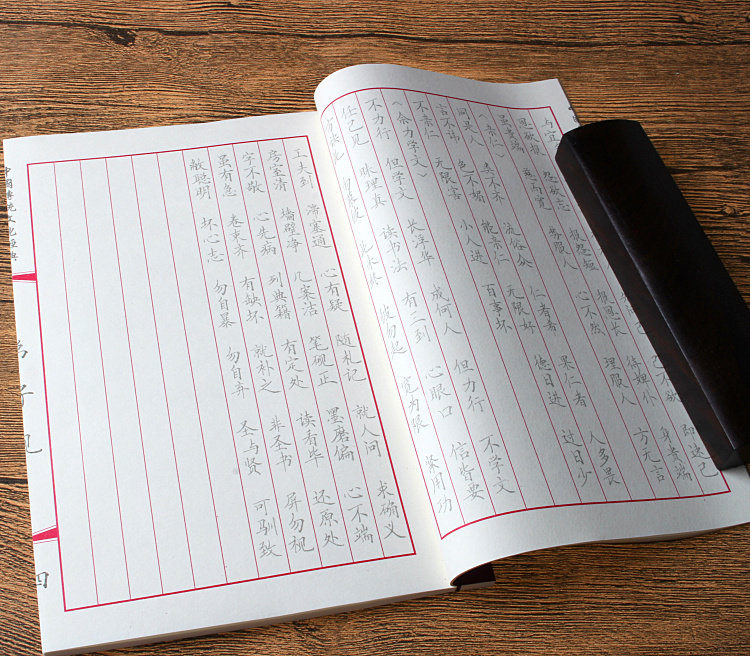 与宜 己不欲 即速已
恩欲报 怨欲忘 报怨短 报恩长 待婢仆 身贵端
虽贵端 慈而宽 势服人 心不然 理服人 方无言
（亲仁）
同是人 类不齐 流俗众 仁者希 果仁者 人多畏
言不讳 色不媚 能亲仁 无限好 德日进 过日少
不亲仁 无限害 小人进 百事坏
（余力学文）
不力行 但学文 长浮华 成何人 但力行 不学文
任己见 昧理真 读书法 有三到 心眼口 信皆要
方读此 勿慕彼 此未终 彼勿起 宽为限 紧用功
工夫到 滞塞通 心有疑 随札记 就人问 求确义
房室清 墙壁净 几案洁 笔砚正 墨磨偏 心不端
字不敬 心先病 列典籍 有定处 读看毕 还原处
虽有急 卷束齐 有缺坏 就补之 非圣书 屏勿视
敝聪明 坏心志 勿自暴 勿自弃 圣与贤 可驯致
中国传统文化经典
弟子规
四